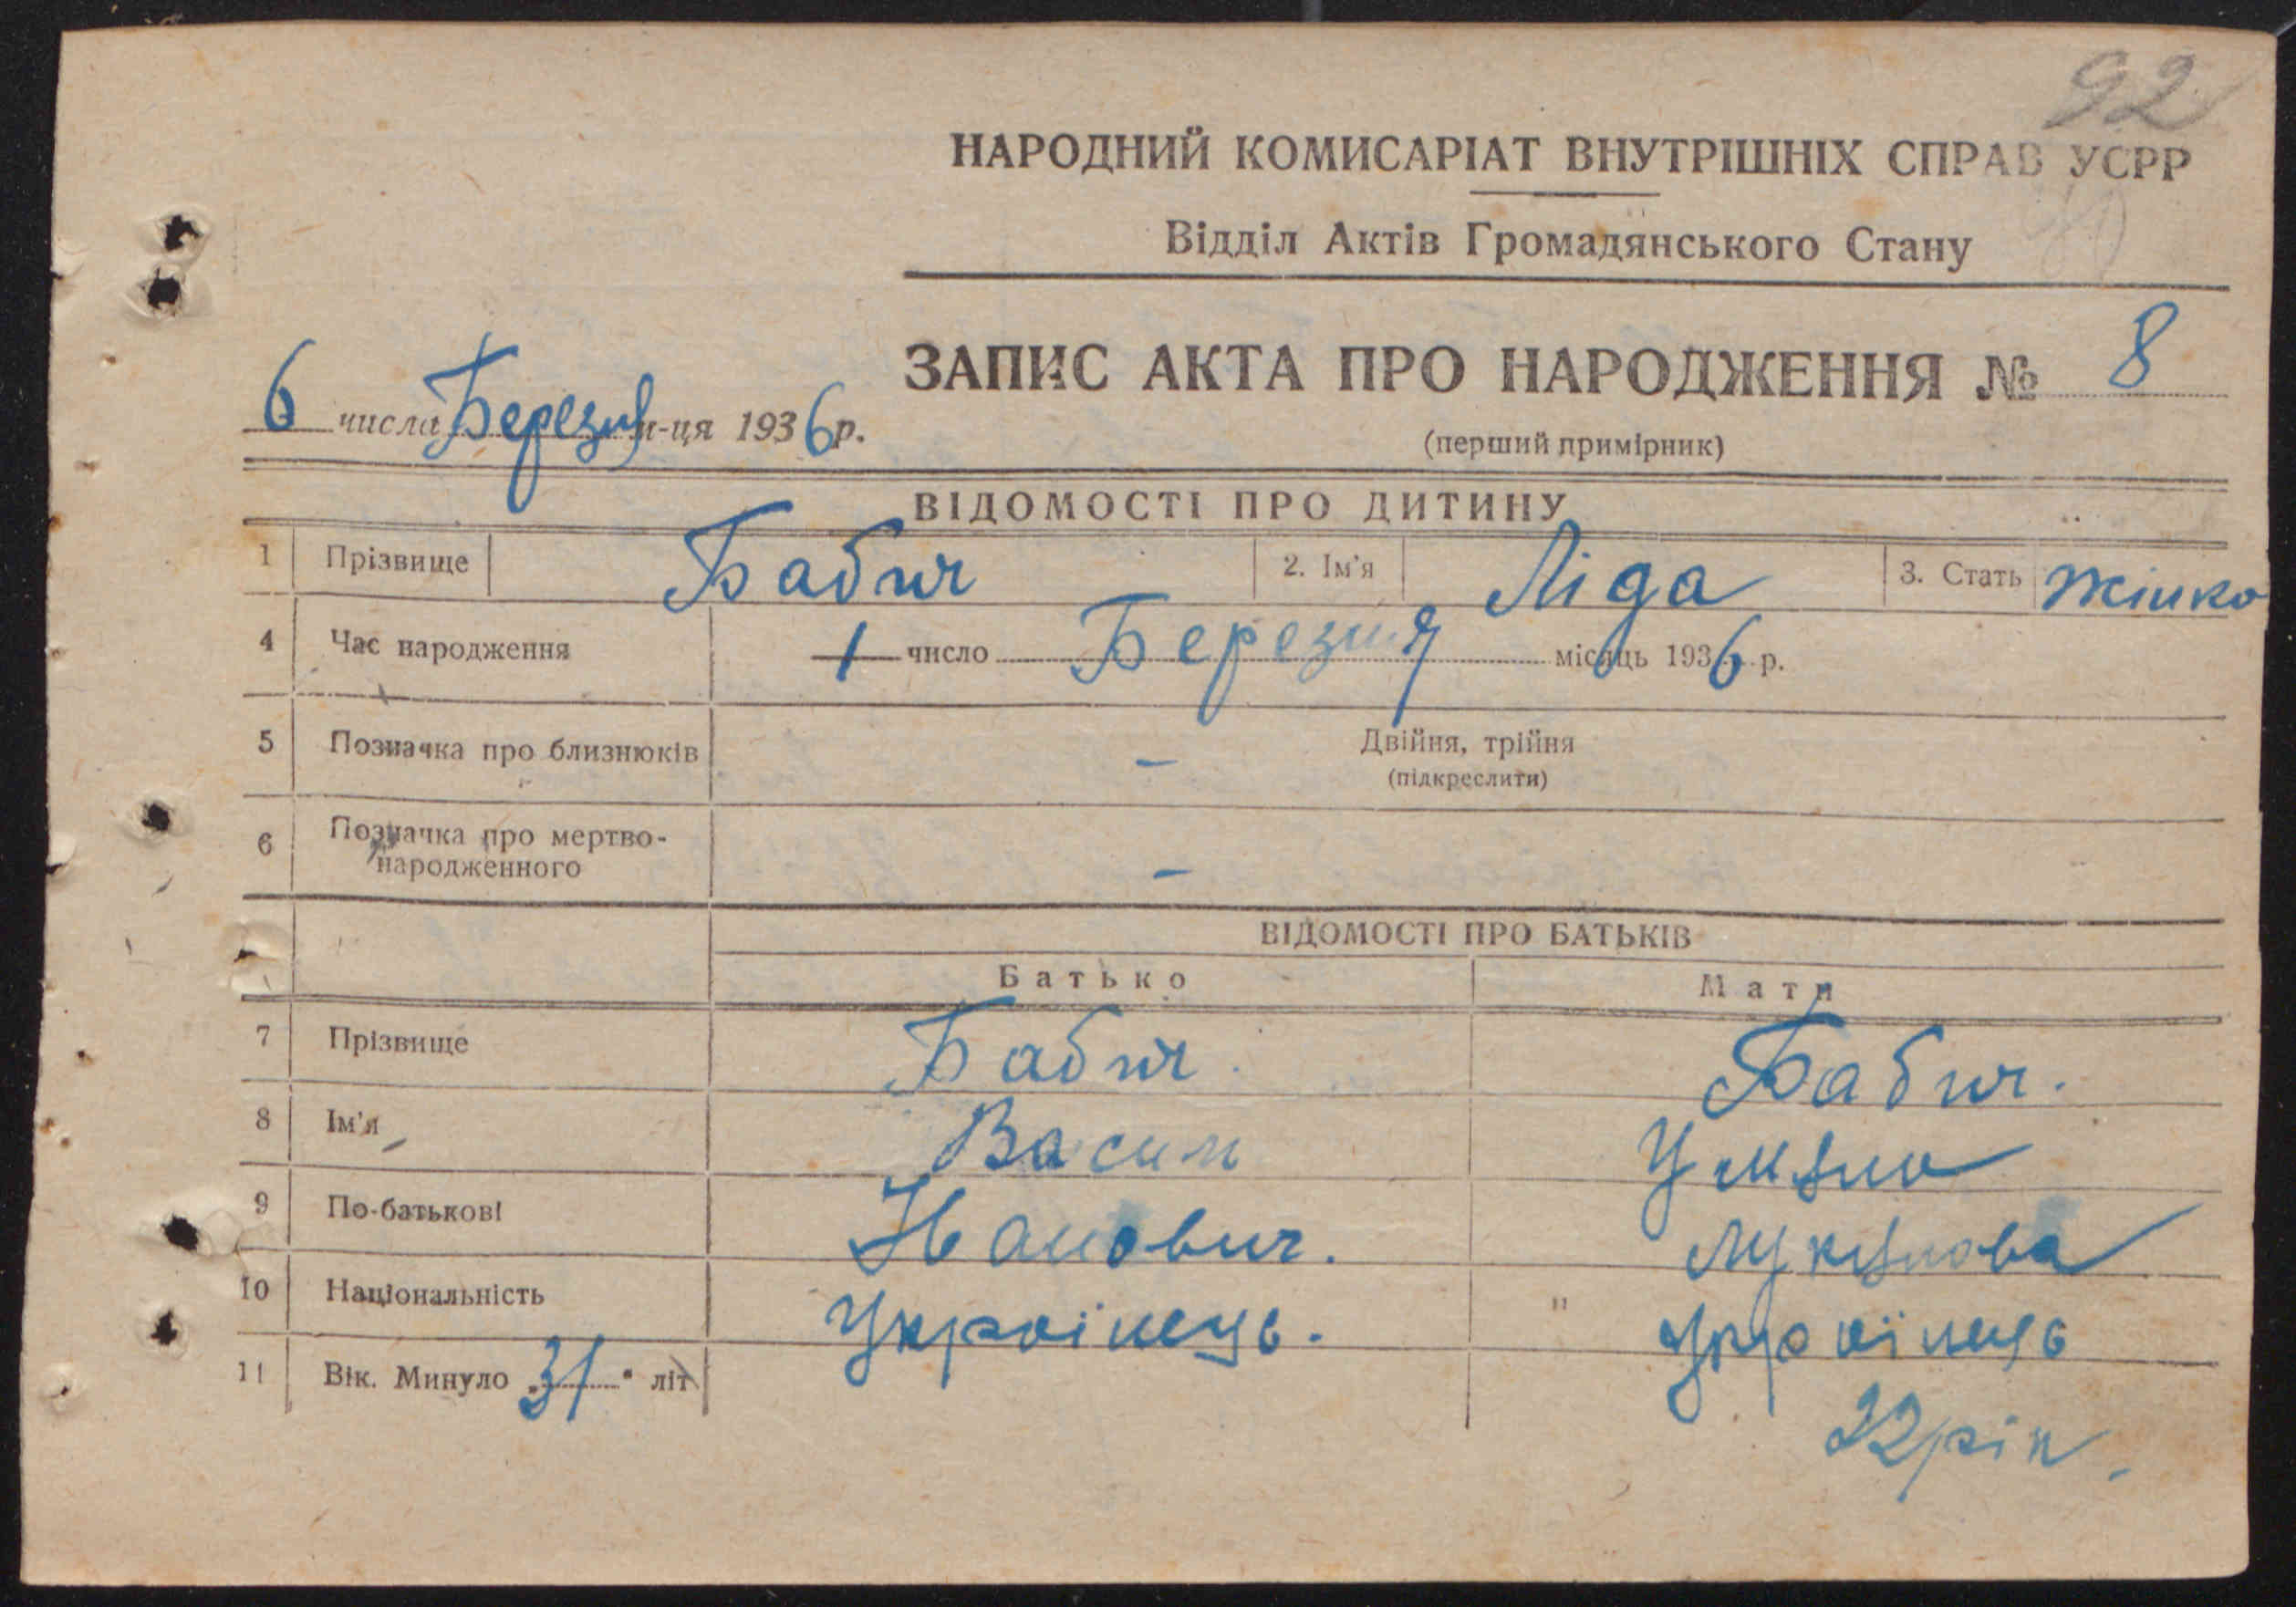 92
НАРОДНИЙ КОМИСАРІАТ ВНУТРІШНІХ СПРАВ УСРР
Відділ Актів Громадянського Стану
ЗАПИС АКТА ПРО НАРОДЖЕННЯ № 8
6 числа Березня м-ця 1936 р.
(перший примірник)
ВІДОМОСТІ ПРО ДИТИНУ
1 Прізвище Бабич 2. Ім'я Ліда 3. Стать Жінка
4 Час народження 1 число Березня місяць 1936 р.
5 Позначка про близнюків - Двійня, трійня
(підкреслити)
6 Позначка про мертво-
народженного -
ВІДОМОСТІ ПРО БАТЬКІВ
Батько Мати
7 Прізвище Бабич. Бабич.
8 Ім'я Васил
9 По-батькові Іванович.
10 Національність Українець. " Українець
11 Вік. Минуло „31" літ 22 рік.